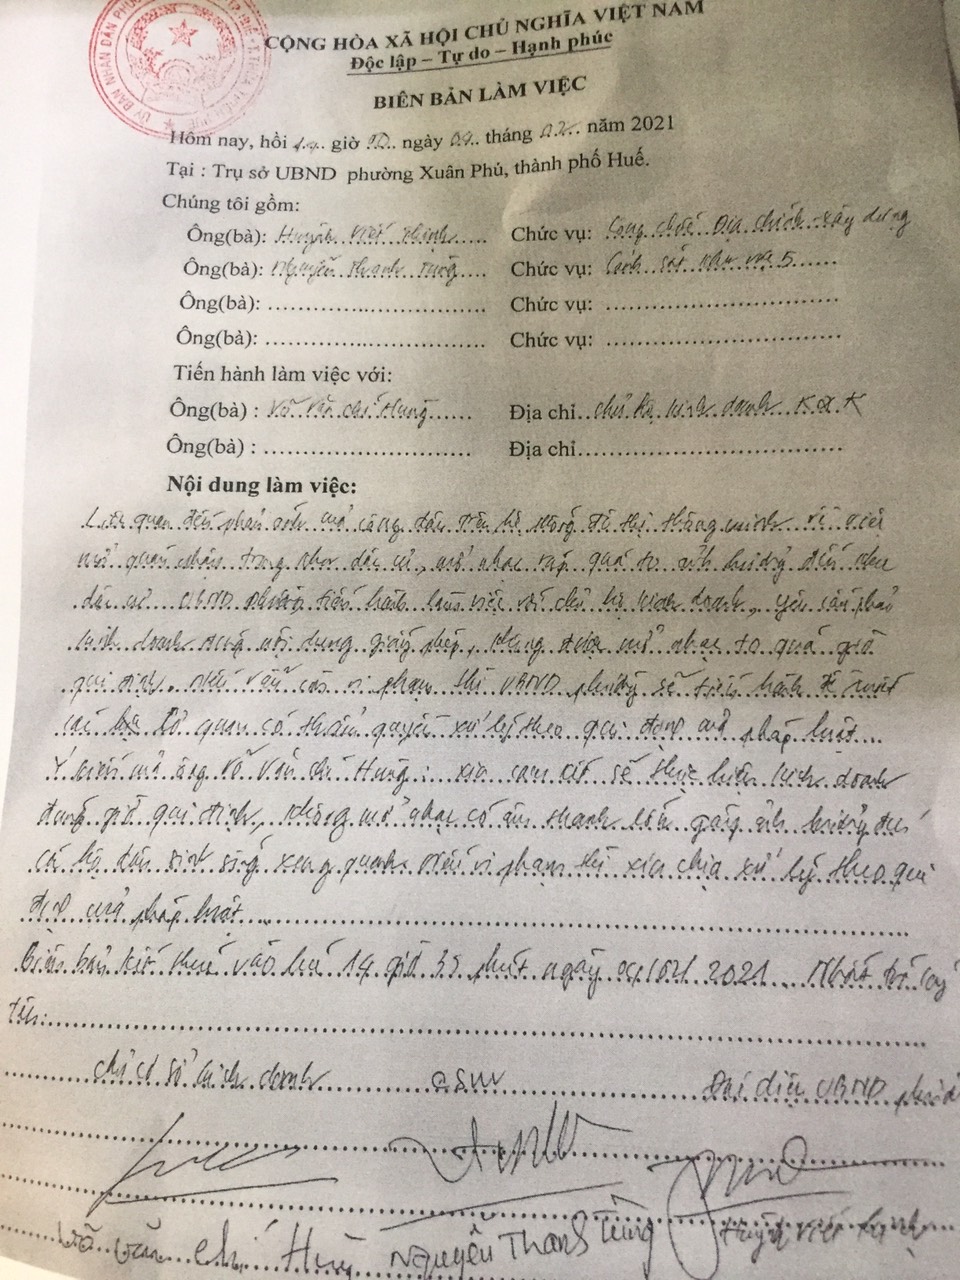 ỦY BAN NHÂN DÂN
CỘNG HÒA XÃ HỘI CHỦ NGHĨA VIỆT NAM
Độc lập – Tự do – Hạnh phúc
BIÊN BẢN LÀM VIỆC
Hôm nay, hồi 14 giờ ngày tháng năm 2021
Tại : Trụ sở UBND phường Xuân Phú, thành phố Huế.
Chúng tôi gồm:
Ông(bà): Huỳnh Viết Thịnh Chức vụ: Công chức Địa chính - xây dựng
Ông(bà): Nguyễn Thanh Tùng Chức vụ: Cảnh sát khu vực 5
Ông(bà): Chức vụ:
Ông(bà): Chức vụ:
Tiến hành làm việc với:
Ông(bà) : Võ Văn Chí Hùng Địa chỉ chủ hộ kinh doanh K.O.K
Ông(bà) : Địa chỉ
Nội dung làm việc:
Liên quan đến phản ánh của công dân trên hệ thống đô thị thông minh về việc
mở quán nhậu trong khu dân cư, mở nhạc quá to ảnh hưởng đến khu
dân cư UBND phường tiến hành làm việc với chủ hộ kinh doanh, yêu cầu phải
kinh doanh đúng nội dung giấy phép, không được mở nhạc to quá giờ
qui định. nếu vẫn còn vi phạm thì UBND phường sẽ tiến hành đề xuất
các cơ quan có thẩm quyền xử lý theo qui định của pháp luật
Ý kiến của ông Võ Văn Chí Hùng: xin cam kết sẽ thực hiện kinh doanh
đúng giờ qui định, không mở nhạc có âm thanh lớn gây ảnh hưởng đến
các hộ dân sinh sống xung quanh nếu vi phạm thì xin chịu xử lý theo qui
định của pháp luật
Biên bản kết thúc vào lúc 14 giờ 35 phút ngày 2021 Nhất trí ký
tên:
chủ cơ sở kinh doanh CSKV Đại diện UBND phường
Võ Văn Chí Hùng Nguyễn Thanh Tùng Huỳnh Viết Thịnh